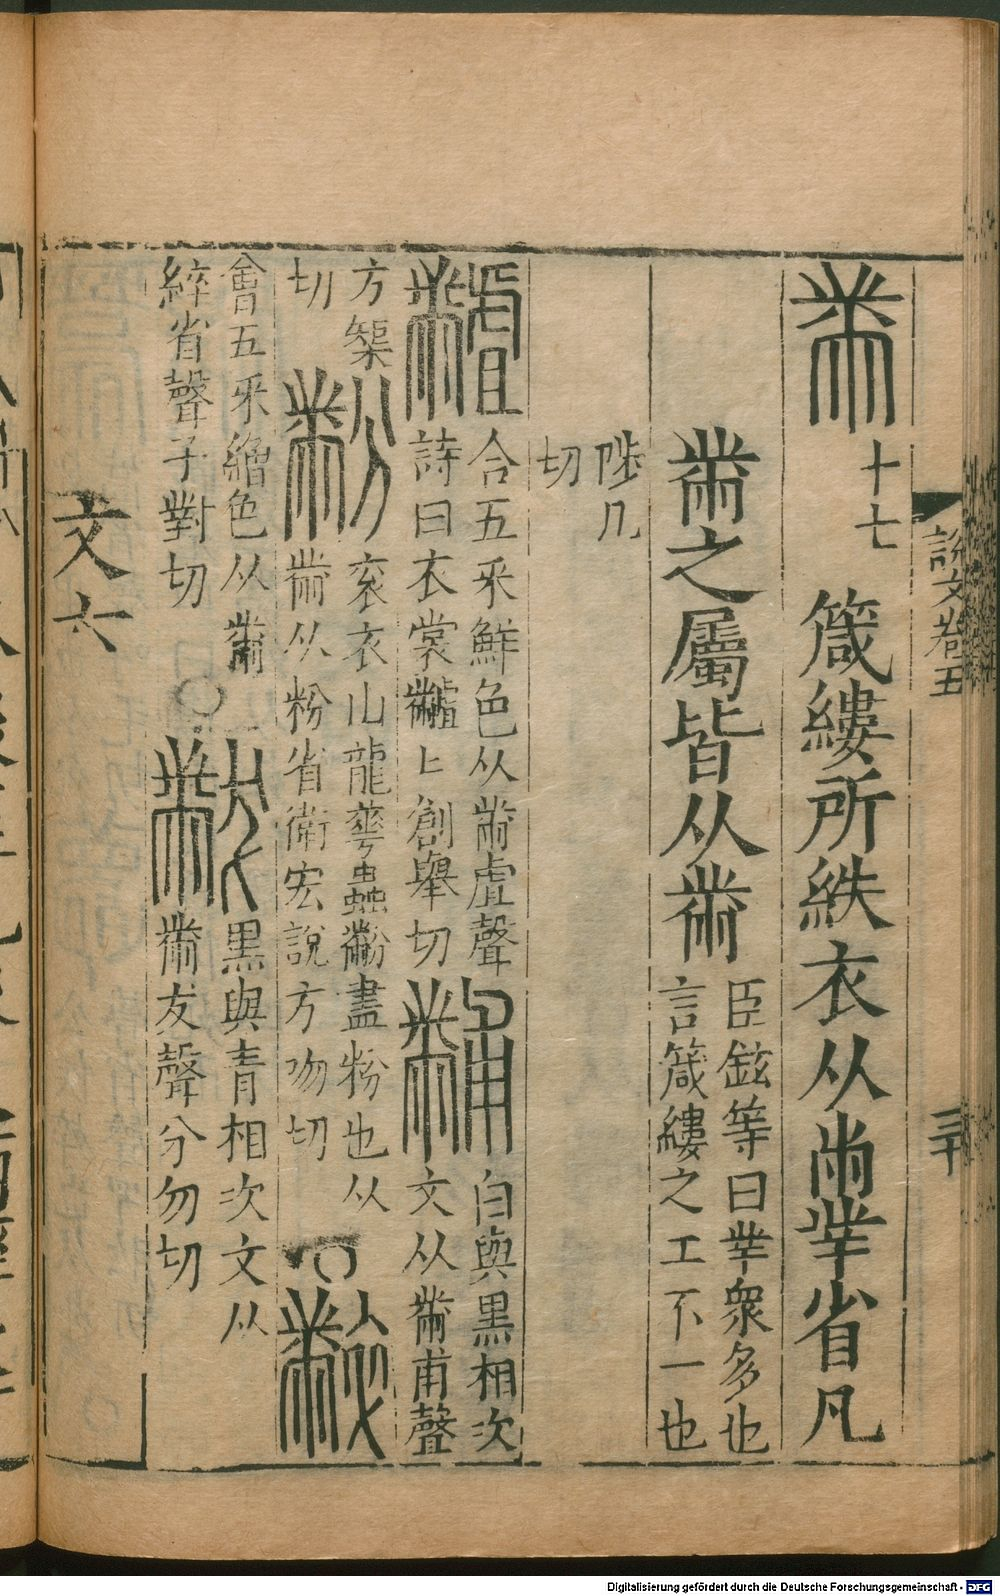 說文卷五
三十
黹 十七 箴縷所紩衣从㡀丵省凡
黹之屬皆从黹
臣鉉等曰丵衆多也
言箴縷之工不一也
陟几
切
𪓐
合五采鮮色从黹虘聲
詩曰衣裳𪓐〻創舉切
黼
白與黑相次
文从黹甫聲
方榘
切
黺
衮衣山龍華蟲黺盡粉也从
黹从粉省衛宏說方吻切
○
會五采繒色从黹
綷省聲子對切
○
黻
黑與青相次文从
黹友聲分勿切
文六
Digitalisierung gefördert durch die Deutsche Forschungsgemeinschaft - DFG